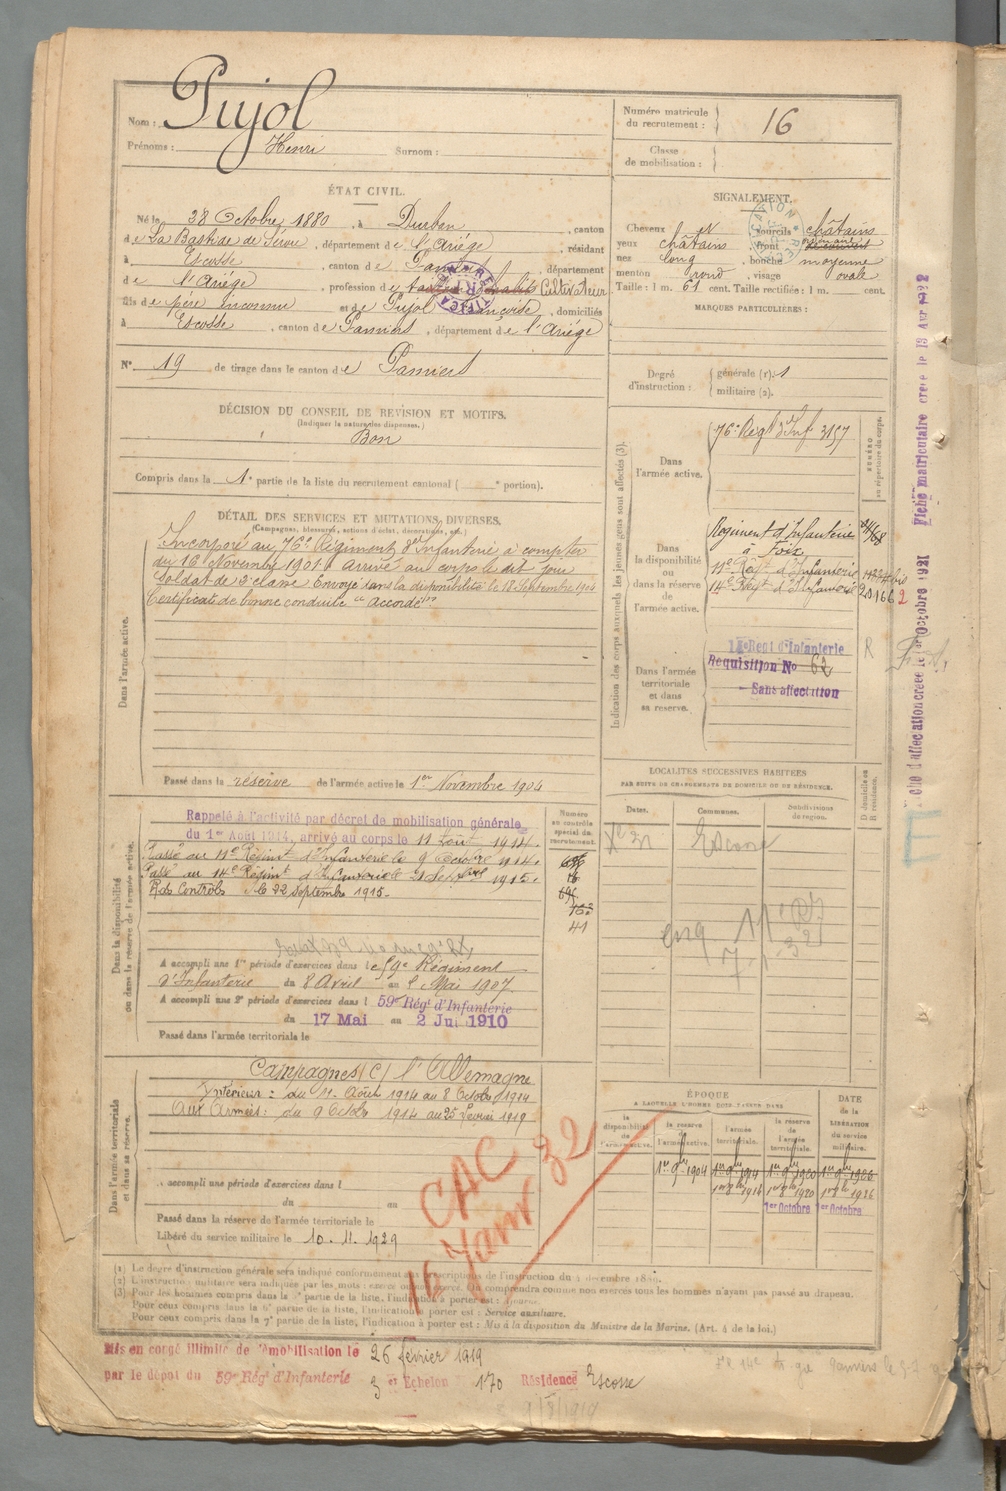 Nom : Pujol
Prénoms : Henri Surnom :
Numéro matricule du recrutement : 16
Classe de mobilisation :
ÉTAT CIVIL.
Né le 28 Octobre 1880, à Durban, canton
de La Bastide de Sérou, département de l'Ariège, résidant
à Escosse, canton de Pamiers, département
de l'Ariège, profession de Cultivateur
fils de père inconnu et de Pujol Françoise, domiciliés
à Escosse, canton de Pamiers, département de l'Ariège
N° 19 de tirage dans le canton de Pamiers
SIGNALEMENT.
Cheveux et sourcils châtains
yeux châtains, front
nez long, bouche moyenne
menton rond, visage ovale
Taille : 1 m. 61 cent. Taille rectifiée : 1 m. cent.
MARQUES PARTICULIÈRES :
Degré d'instruction : générale (1). 1
militaire (2).
DÉCISION DU CONSEIL DE REVISION ET MOTIFS.
(Indiquer la nature des dispenses.)
Bon
Compris dans la 1e partie de la liste du recrutement cantonal ( e portion).
DÉTAIL DES SERVICES ET MUTATIONS DIVERSES.
(Campagnes, blessures, actions d'éclat, décorations, etc.)
Dans l'armée active.
Incorporé au 76e Régiment d'Infanterie à compter
du 16 Novembre 1901. Arrivé au corps le dit jour
Soldat de 2e classe. Envoyé dans la disponibilité le 18 Septembre 1904
Certificat de bonne conduite "accordé"
Passé dans la réserve de l'armée active le 1er Novembre 1904
Indication des corps auxquels les jeunes gens sont affectés (3).
NUMÉRO au répertoire du corps.
Dans l'armée active.
76e Regt d'Inf 3157
Dans la disponibilité ou dans la réserve de l'armée active.
Régiment d'Infanterie
à Foix
11e Régt d'Infanterie
14e Régt d'Infanterie
Dans l'armée territoriale et dans sa réserve.
Regt d'Infanterie
Requisition No 62
Sans affectation
R
Fiche matriculaire créée le 19 Avr 1922
Octobre 1921
LOCALITÉS SUCCESSIVES HABITÉES
PAR SUITE DE CHANGEMENTS DE DOMICILE OU DE RÉSIDENCE.
Dates. Communes. Subdivisions de région. D domicile ou R résidence.
Escosse
Dans la disponibilité ou dans la réserve de l'armée active.
Numéro au contrôle spécial du recrutement.
Rappelé à l'activité par décret de mobilisation générale
du 1er Août 1914, arrivé au corps le 11 août 1914.
Passé au 11e Régimt d'Infanterie le 9 Octobre 1914.
Passé au 14e Régimt d'Infanterie le 21 Septbre 1915.
R. des Contrôles le 22 septembre 1915.
41
A accompli une 1re période d'exercices dans le 59e Régiment
d'Infanterie du 8 Avril au Mai 1907
A accompli une 2e période d'exercices dans l 59e Régt d'Infanterie
du 17 Mai au 2 Jui 1910
Passé dans l'armée territoriale le
Dans l'armée territoriale et dans sa réserve.
Campagnes (C) l'Allemagne
Intérieur : du 11 Août 1914 au 8 Octobre 1914
Aux Armées : du 9 Octobre 1914 au 25 Février 1919
accompli une période d'exercices dans l
du au
Passé dans la réserve de l'armée territoriale le
Libéré du service militaire le 10.11.1929
CAC
16 Janv 32
ÉPOQUE
A LAQUELLE L'HOMME DOIT PASSER DANS
la disponibilité de l'armée active. la réserve de l'armée active. l'armée territoriale. la réserve de l'armée territoriale.
DATE de la LIBÉRATION du service militaire.
1er 9bre 1904 1er 9bre 1914 1er 9bre 1920 1er 9bre 1926
1er Octobre 1er Octobre
(1) Le degré d'instruction générale sera indiqué conformément aux prescriptions de l'instruction du 4 décembre 1889.
(2) L'instruction militaire sera indiquée par les mots : exercé ou non exercé. On comprendra comme non exercés tous les hommes n'ayant pas passé au drapeau.
(3) Pour les hommes compris dans la 1e partie de la liste, l'indication à porter est :
Pour ceux compris dans la 6e partie de la liste, l'indication à porter est : Service auxiliaire.
Pour ceux compris dans la 7e partie de la liste, l'indication à porter est : Mis à la disposition du Ministre de la Marine. (Art. 4 de la loi.)
Mis en congé illimité de démobilisation le 26 février 1919
par le dépôt du 59e Régt d'Infanterie
3 er Echelon 170 Résidence Escosse